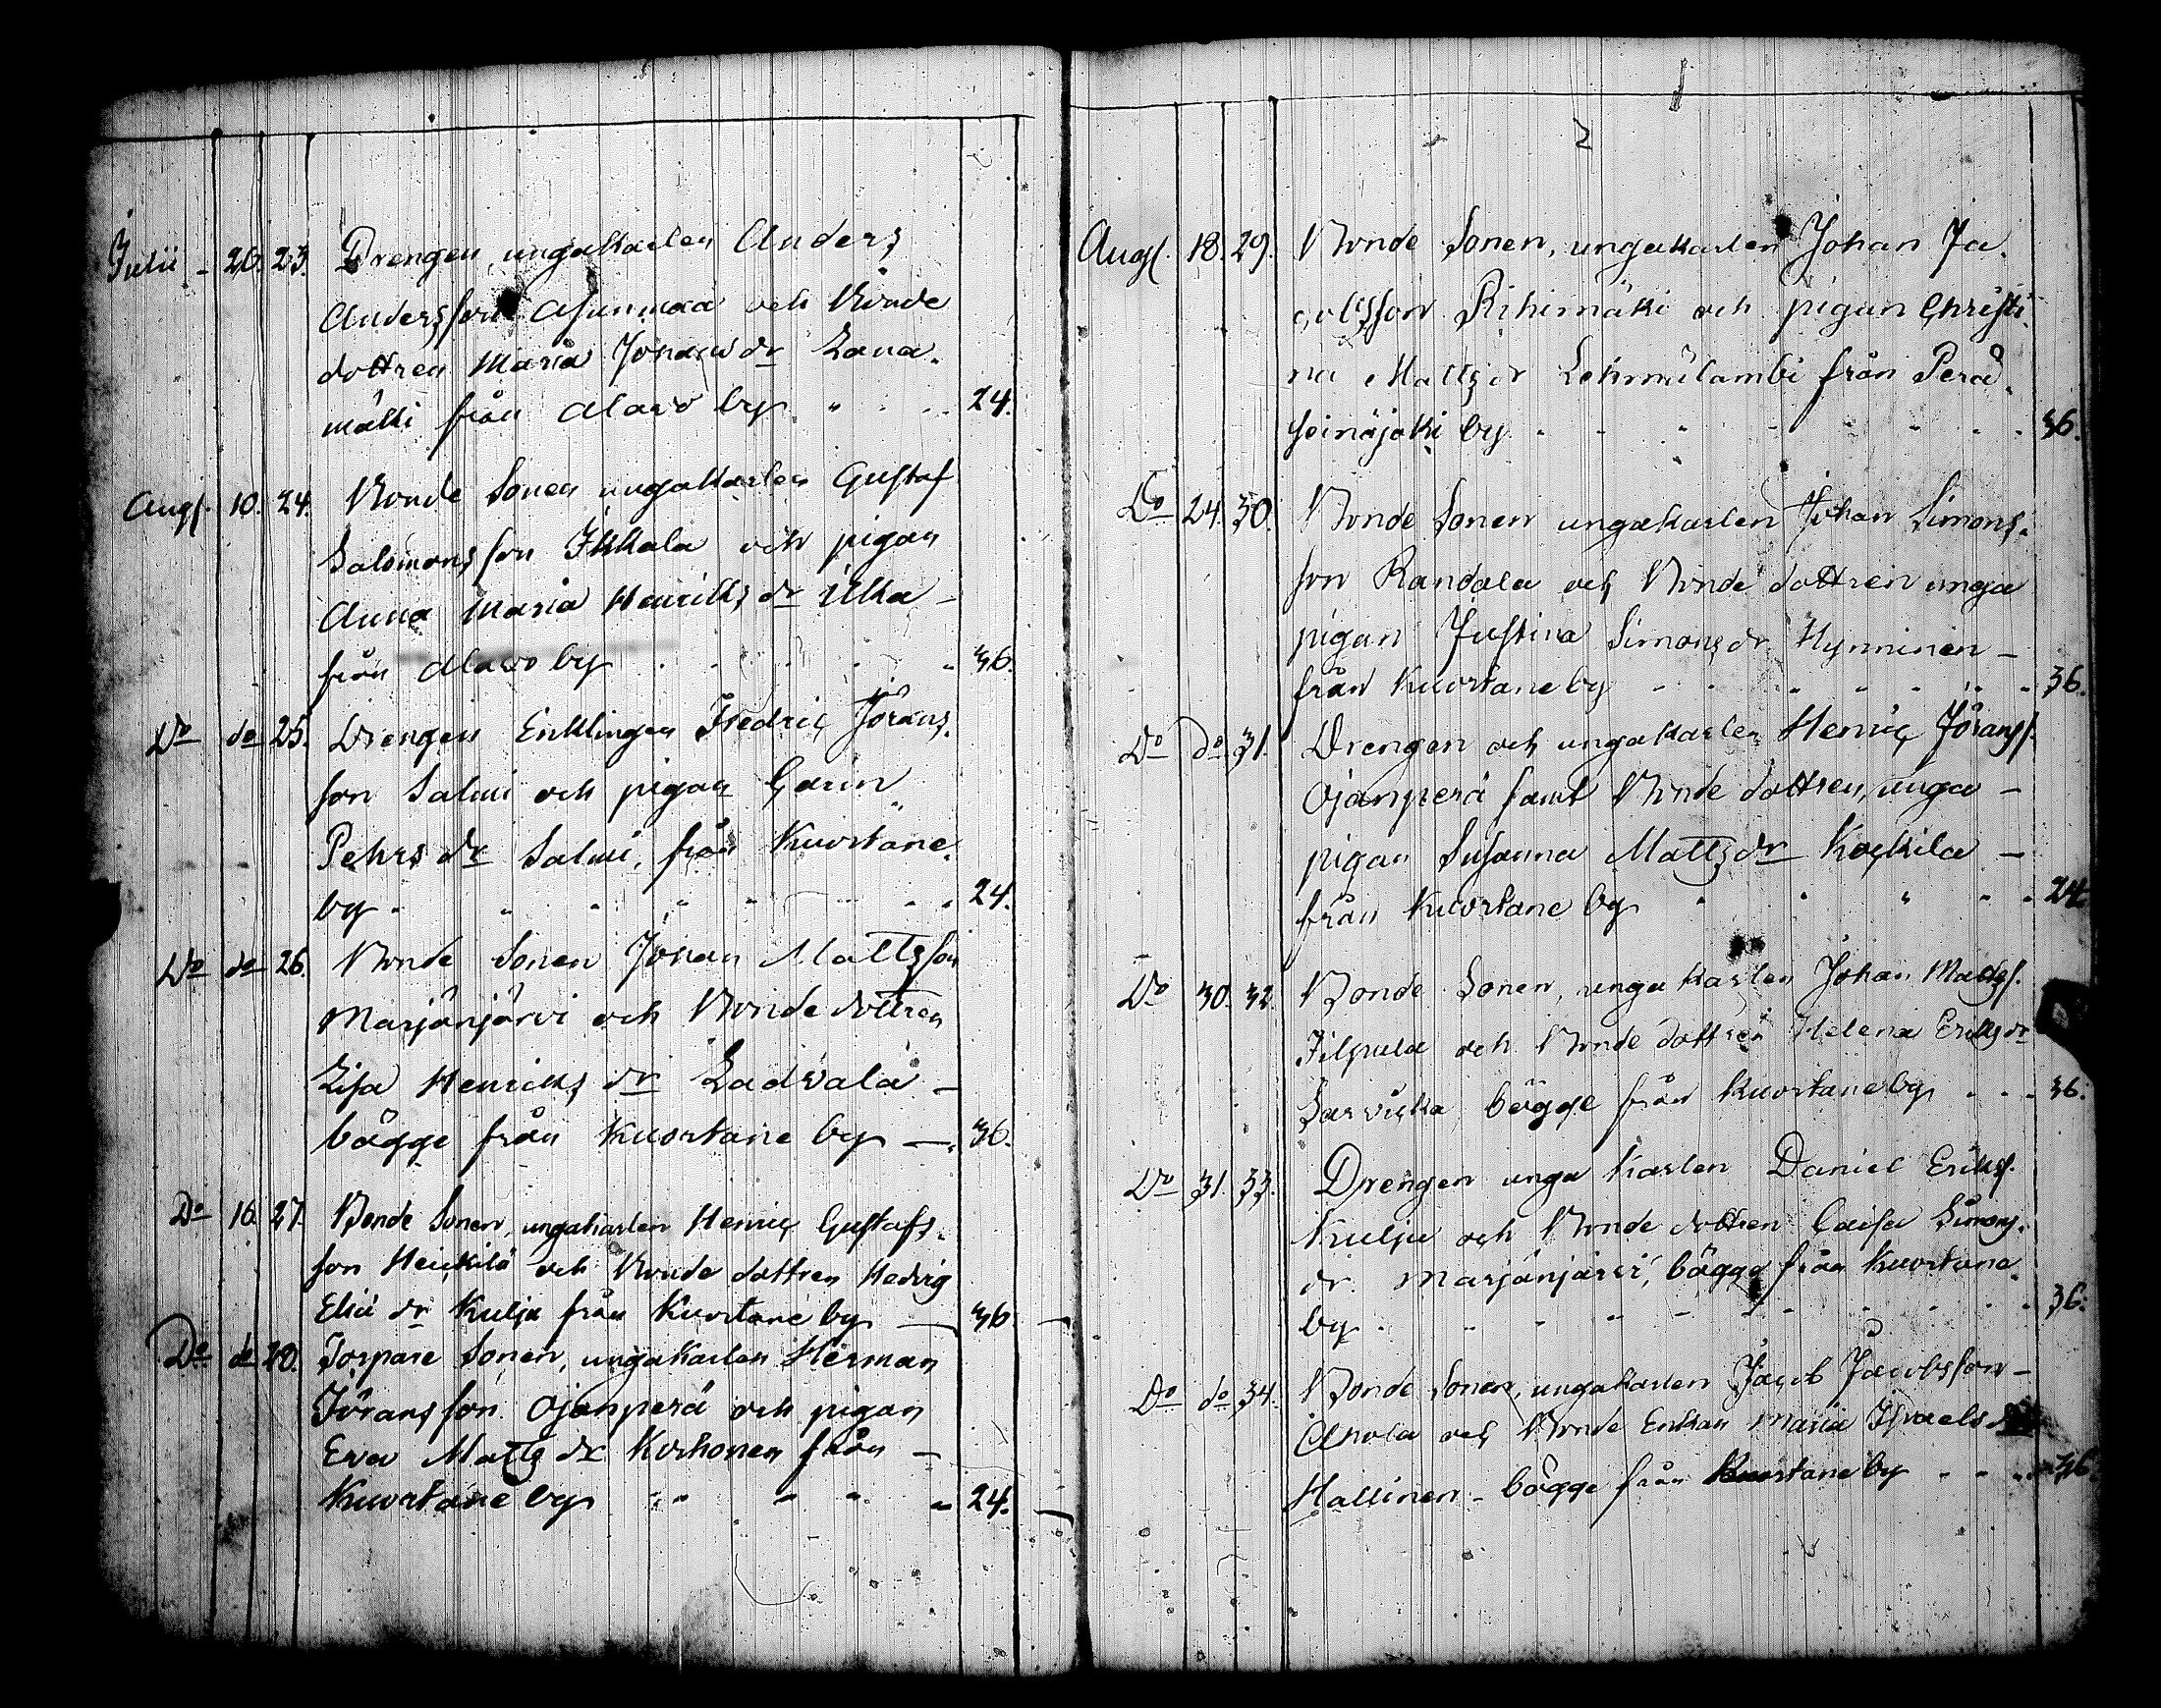 Julii - 26. 23. Drengen, ungakarlen Anders
Andersson Asunmaa och Bonde
dottren Maria Jonæ dr Lana-
mäki från Alavo by 24.
Augs. 10. 24. Bonde Sonen ungakarlen Gustaf
Salomonsson Ikkala och pigan
Anna Maria Henriks dr Ilka -
från Alavo by 36.
Do do 25. Drengen Enklingen Fredric Jörans-
son Salmi och pigan Carin
Pehrs dr Salmi, från Kuortane
by 24.
Do do 26. Bonde Sonen Johan Mattsson
Marjänjärvi och Bonde dottren
Lisa Henriks dr Ladvala -
bägge från Kuortane by - 36.
Do 16. 27. Bonde Sonen, ungakarlen Henric Gustafs-
son Heickilä och Bonde dottren Hedvig
Eliæ dr Kulju från Kuortane by - 36
Do do 28. Torpare Sonen, ungakarlen Herman
Jöransson Ojanperä och pigan
Eva Matts dr Korhonen från -
Kuortane by 24.
Augs. 18. 29. Bonde Sonen, ungakarlen Johan Ja-
cobsson Rihimäki och pigan Christi-
na Matts dr Lehmülambi från Perä-
seinäjoki by 36.
Do 24. 30. Bonde Sonen ungakarlen Johan Simons-
son Randala och Bonde dottren unga
pigan Justina Simons dr Hynninen -
från Kuortane by 36.
Do do 31. Drengen och ungakarlen Henric Jöranss.
Ojanperä samt Bonde dottren, unga -
pigan Susanna Matts dr Kockila -
från Kuortane by 24.
Do 30. 32. Bonde Sonen, ungakarlen Johan Matss.
och Bonde dottren Helena Eriks dr
Sarvicka, bägge från Kuortane by 36.
Do 31. 33. Drengen unga karlen Daniel Erikss.
Kulju och Bonde dottren Caisa Simons-
dr. Marjänjärvi, bägge från Kuortane
by 36.
Do do 34. Bonde Sonen, ungakarlen Jacob Jacobsson -
Akola och Bonde Enkan Maria Israels dr
Hallinen - bägge från Kuortane by 36.